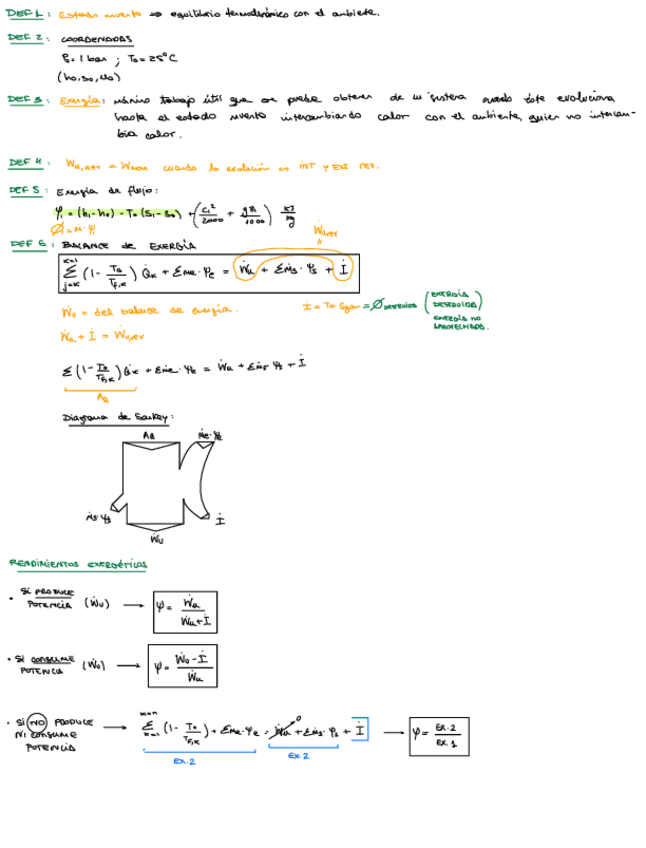 DEF 1: Estado muerto => equilibrio termodinámico con el ambiente.
DEF 2: COORDENADAS
P₀ = 1 bar ; T₀ = 25°C
(h₀, s₀, u₀)
DEF 3: Exergía: máximo trabajo útil que se puede obtener de un sistema cuando éste evoluciona
hasta el estado muerto intercambiando calor con el ambiente, quien no intercam-
bia calor.
DEF 4: Wu,rev = Wmax cuando la evolución es INT y EXT rev.
DEF 5: Exergía de flujo:
Ψ₁ = (h₁ - h₀) - T₀ (s₁ - s₀) + (c₁²/2000 + gz₁/1000) kJ/kg
Ẇu,rev
DEF 6: BALANCE DE EXERGÍA
Σ (1 - T₀/Tf,k) Q̇k + Σṁe·Ψe = Ẇu + Σṁs·Ψs + İ
Ẇu = del balance de energía.
İ = T₀ Sgen = Ø DESTRUIDA (EXERGÍA DESTRUIDA)
ENERGÍA NO
APROVECHADA.
Ẇu + İ = Ẇu,rev
Σ (1 - T₀/Tf,k) Q̇k + Σṁe·Ψe = Ẇu + Σṁs·Ψs + İ
AQ
Diagrama de Sankey:
AQ
ṁe·Ψe
ṁs·Ψs
İ
Ẇu
RENDIMIENTOS EXERGÉTICOS
• Si PRODUCE
POTENCIA (Ẇu) → Ψ = Ẇu/(Ẇu + İ)
• Si CONSUME
POTENCIA (Ẇu) → Ψ = (Ẇu - İ)/Ẇu
• Si NO PRODUCE
NI CONSUME
POTENCIA
→ Σ (1 - T₀/Tf,k) + Σṁe·Ψe = Ẇu⁰ + Σṁs·Ψs + İ → Ψ = EX.2/EX.1
EX.2
EX.2